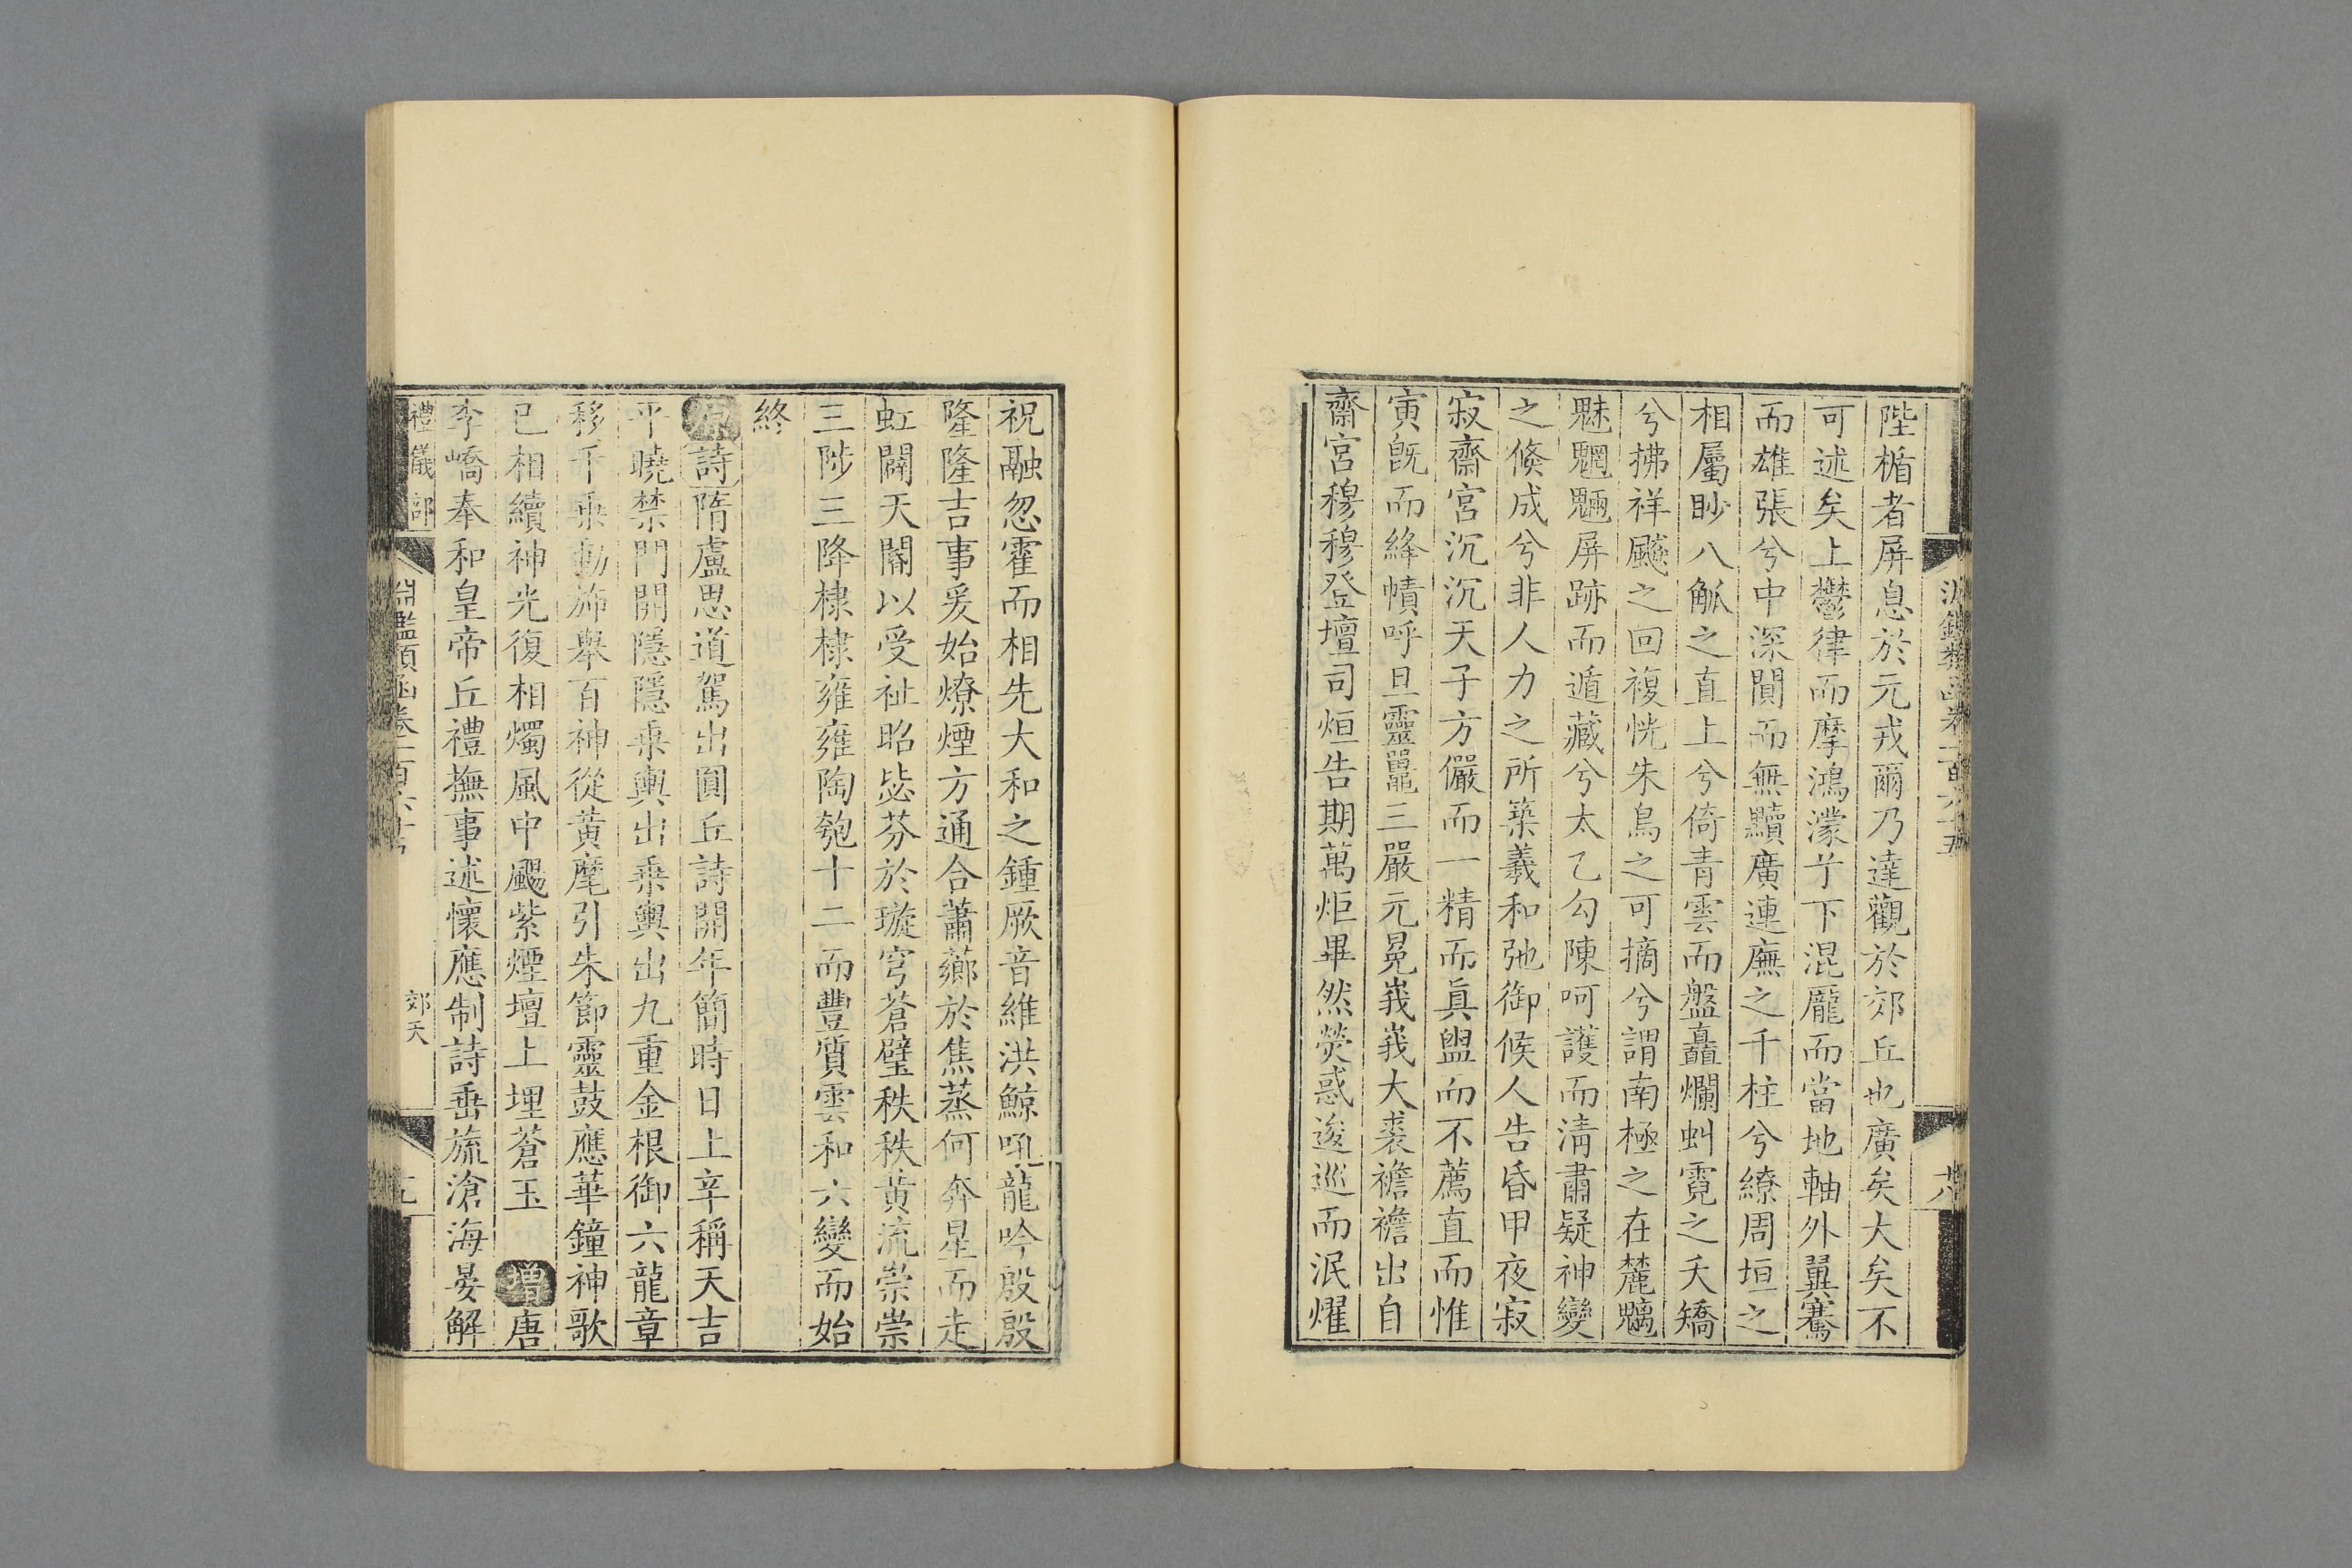 陛楯者屏息於元戎爾乃達觀於郊丘也廣矣大矣不
可述矣上鬱律而摩鴻濛兮下混厖而當地軸外翼騫
而雄張兮中深閴而無黷廣連廡之千柱兮繚周垣之
相屬眇八觚之直上兮倚青雲而盤矗爛虯霓之夭矯
兮拂祥飈之回複恍朱鳥之可摘兮謂南極之在麓魑
魅魍魎屏跡而遁藏兮太乙勾陳呵護而清肅疑神變
之倐成兮非人力之所築羲和弛御候人告昏甲夜寂
寂齋宮沉沉天子方儼而一精而眞盥而不薦直而惟
寅旣而絳幘呼旦靈鼉三嚴元冕峩峩大裘襜襜出自
齋宮穆穆登壇司烜告期萬炬畢然熒惑逡巡而泯燿
祝融忽霍而相先大和之鍾厥音維洪鯨吼龍吟殷殷
隆隆吉事爰始燎煙方通合蕭薌於焦蒸何奔星而走
虹闢天閽以受祉昭毖芬於璇穹蒼璧秩秩黄流崇崇
三陟三降棣棣雍雍陶匏十二而豐質雲和六變而始
終
原詩隋盧思道駕出圓丘詩開年簡時日上辛稱天吉
平曉禁門開隱隱乗輿出乗輿出九重金根御六龍章
移千乗動斾舉百神從黄麾引朱節靈鼓應華鐘神歌
已相續神光復相燭風中颺紫煙壇上埋蒼玉 增唐
李嶠奉和皇帝丘禮撫事述懷應制詩垂旒滄海晏解
禮儀部 淵鑑類函卷一百六十五 郊天